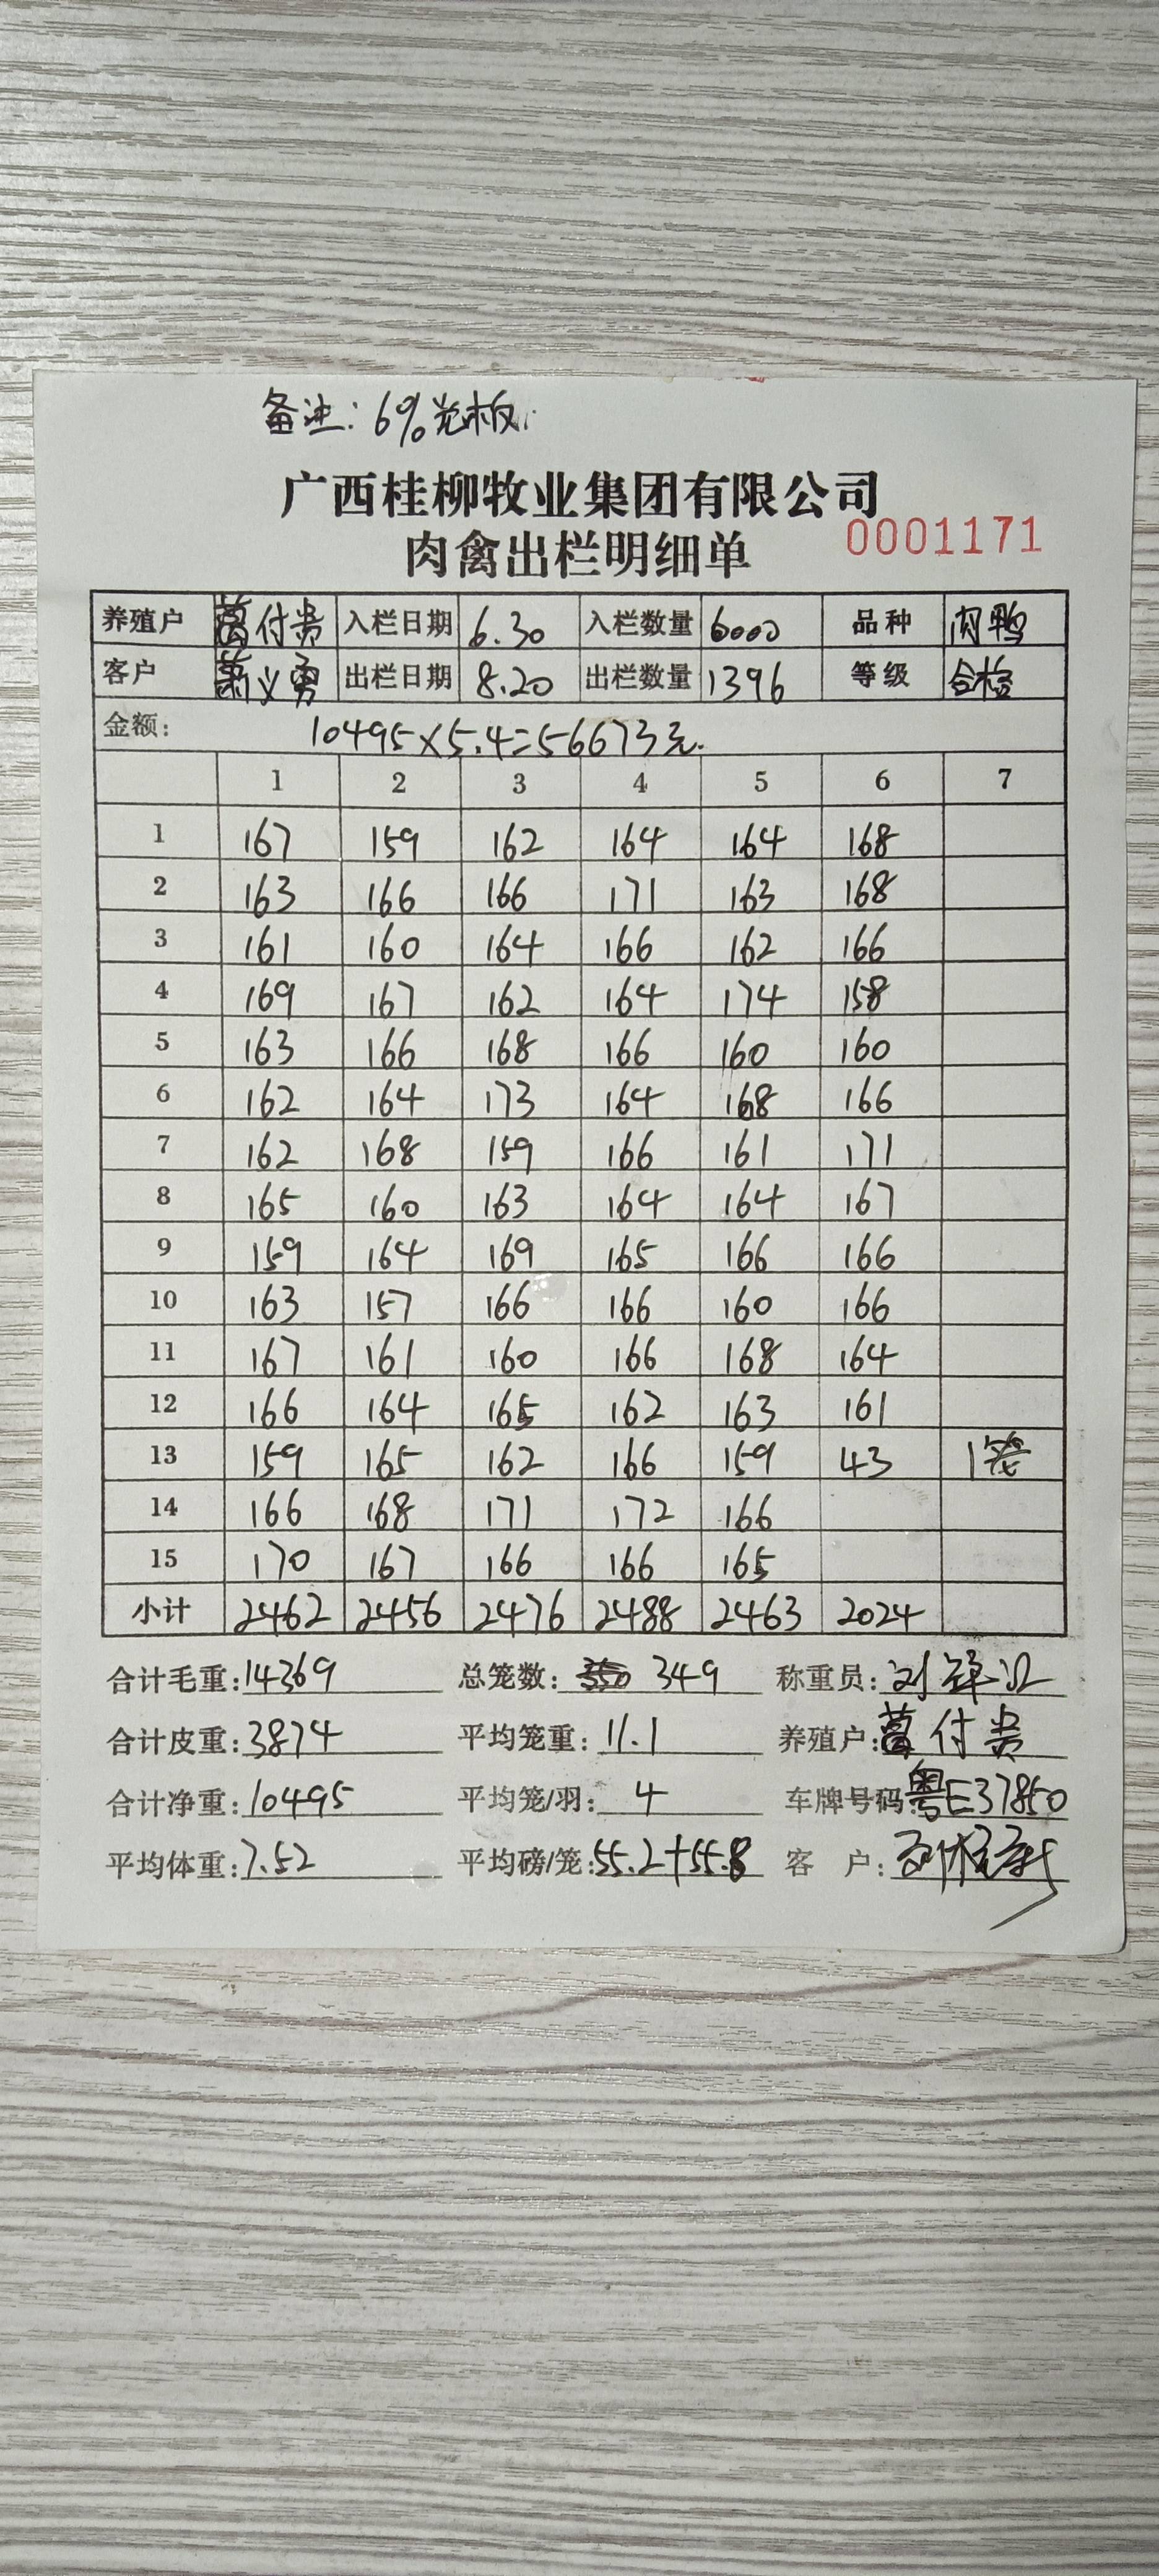 备注: 6%光板.
广西桂柳牧业集团有限公司
肉禽出栏明细单 0001171
养殖户 付贵 入栏日期 6.30 入栏数量 6000 品种 肉鸭
客户 萧义勇 出栏日期 8.20 出栏数量 1396 等级 合检
金额: 10495×5.4=56673元.
1 2 3 4 5 6 7
1 167 159 162 164 164 168
2 163 166 166 171 163 168
3 161 160 164 166 162 166
4 169 167 162 164 174 158
5 163 166 168 166 160 160
6 162 164 173 164 168 166
7 162 168 159 166 161 171
8 165 160 163 164 164 167
9 159 164 169 165 166 166
10 163 157 166 166 160 166
11 167 161 160 166 168 164
12 166 164 165 162 163 161
13 159 165 162 166 159 43 1笼
14 166 168 171 172 166
15 170 167 166 166 165
小计 2462 2456 2476 2488 2463 2024
合计毛重: 14369 总笼数: 349 称重员: 刘
合计皮重: 3874 平均笼重: 11.1 养殖户: 付贵
合计净重: 10495 平均笼/羽: 4 车牌号码: 粤E37850
平均体重: 7.52 平均磅/笼: 55.2+55.8 客 户: